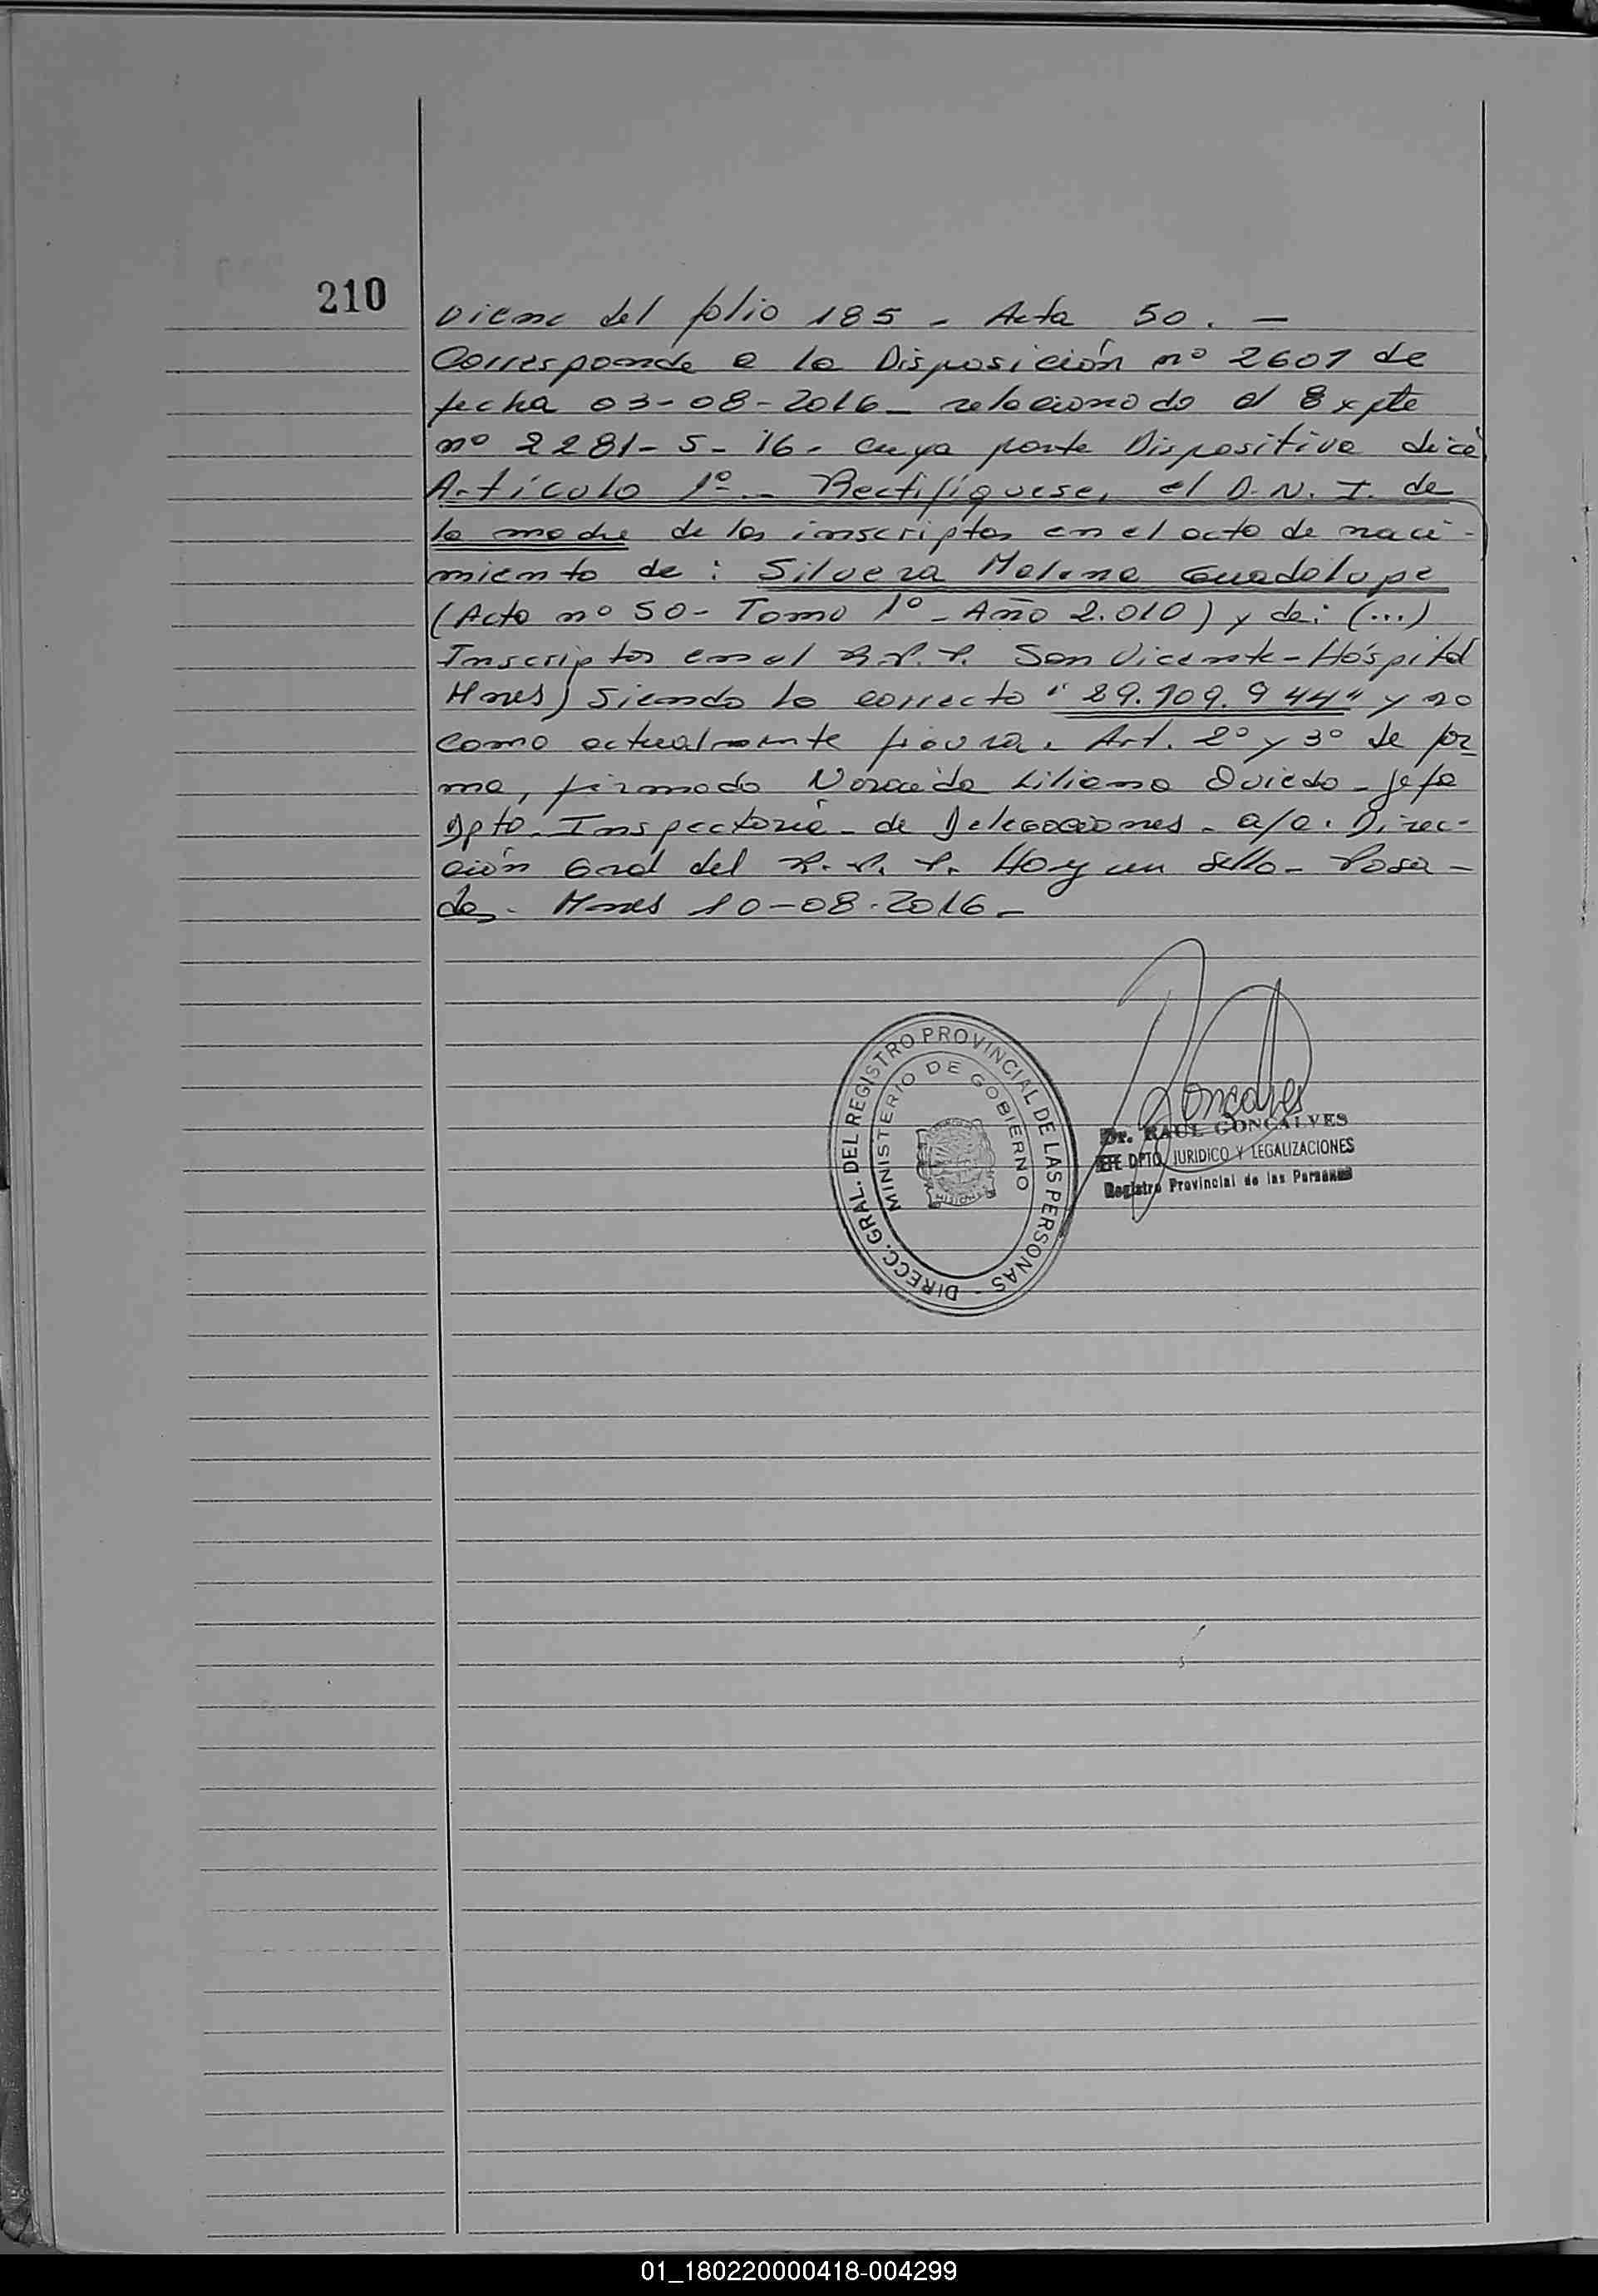 210
Viene del folio 185 - Acta 50. -
Corresponde a la Disposición nº 2601 de
fecha 03-08-2016 - relacionado al Expte
nº 2281-S-16. cuya parte Dispositiva dice
Artículo 1º - Rectifíquese, el D.N.I. de
la madre de las inscriptas en el acta de naci-
miento de: Silvera Malena Guadalupe
(Acta nº 50- Tomo 1º - Año 2.010) y de: (...)
Inscriptas en el R.P.P. San Vicente-Hospital
Mnes) Siendo lo correcto "29.109.944" y no
como actualmente figura. Art. 2º y 3º de for-
ma, firmado Liliana Oviedo - Jefa
Dpto. Inspectoria - de Delegaciones - a/c. Direc-
ción Gral del R.P.P. Hay un sello - Posa-
das - Mnes 10-08-2016 -
DIRECC. GRAL. DEL REGISTRO PROVINCIAL DE LAS PERSONAS -
MINISTERIO DE GOBIERNO
MISIONES
Goncalves
Dr. RAUL GONCALVES
JEFE DPTO. JURIDICO Y LEGALIZACIONES
Registro Provincial de las Personas
01_180220000418-004299